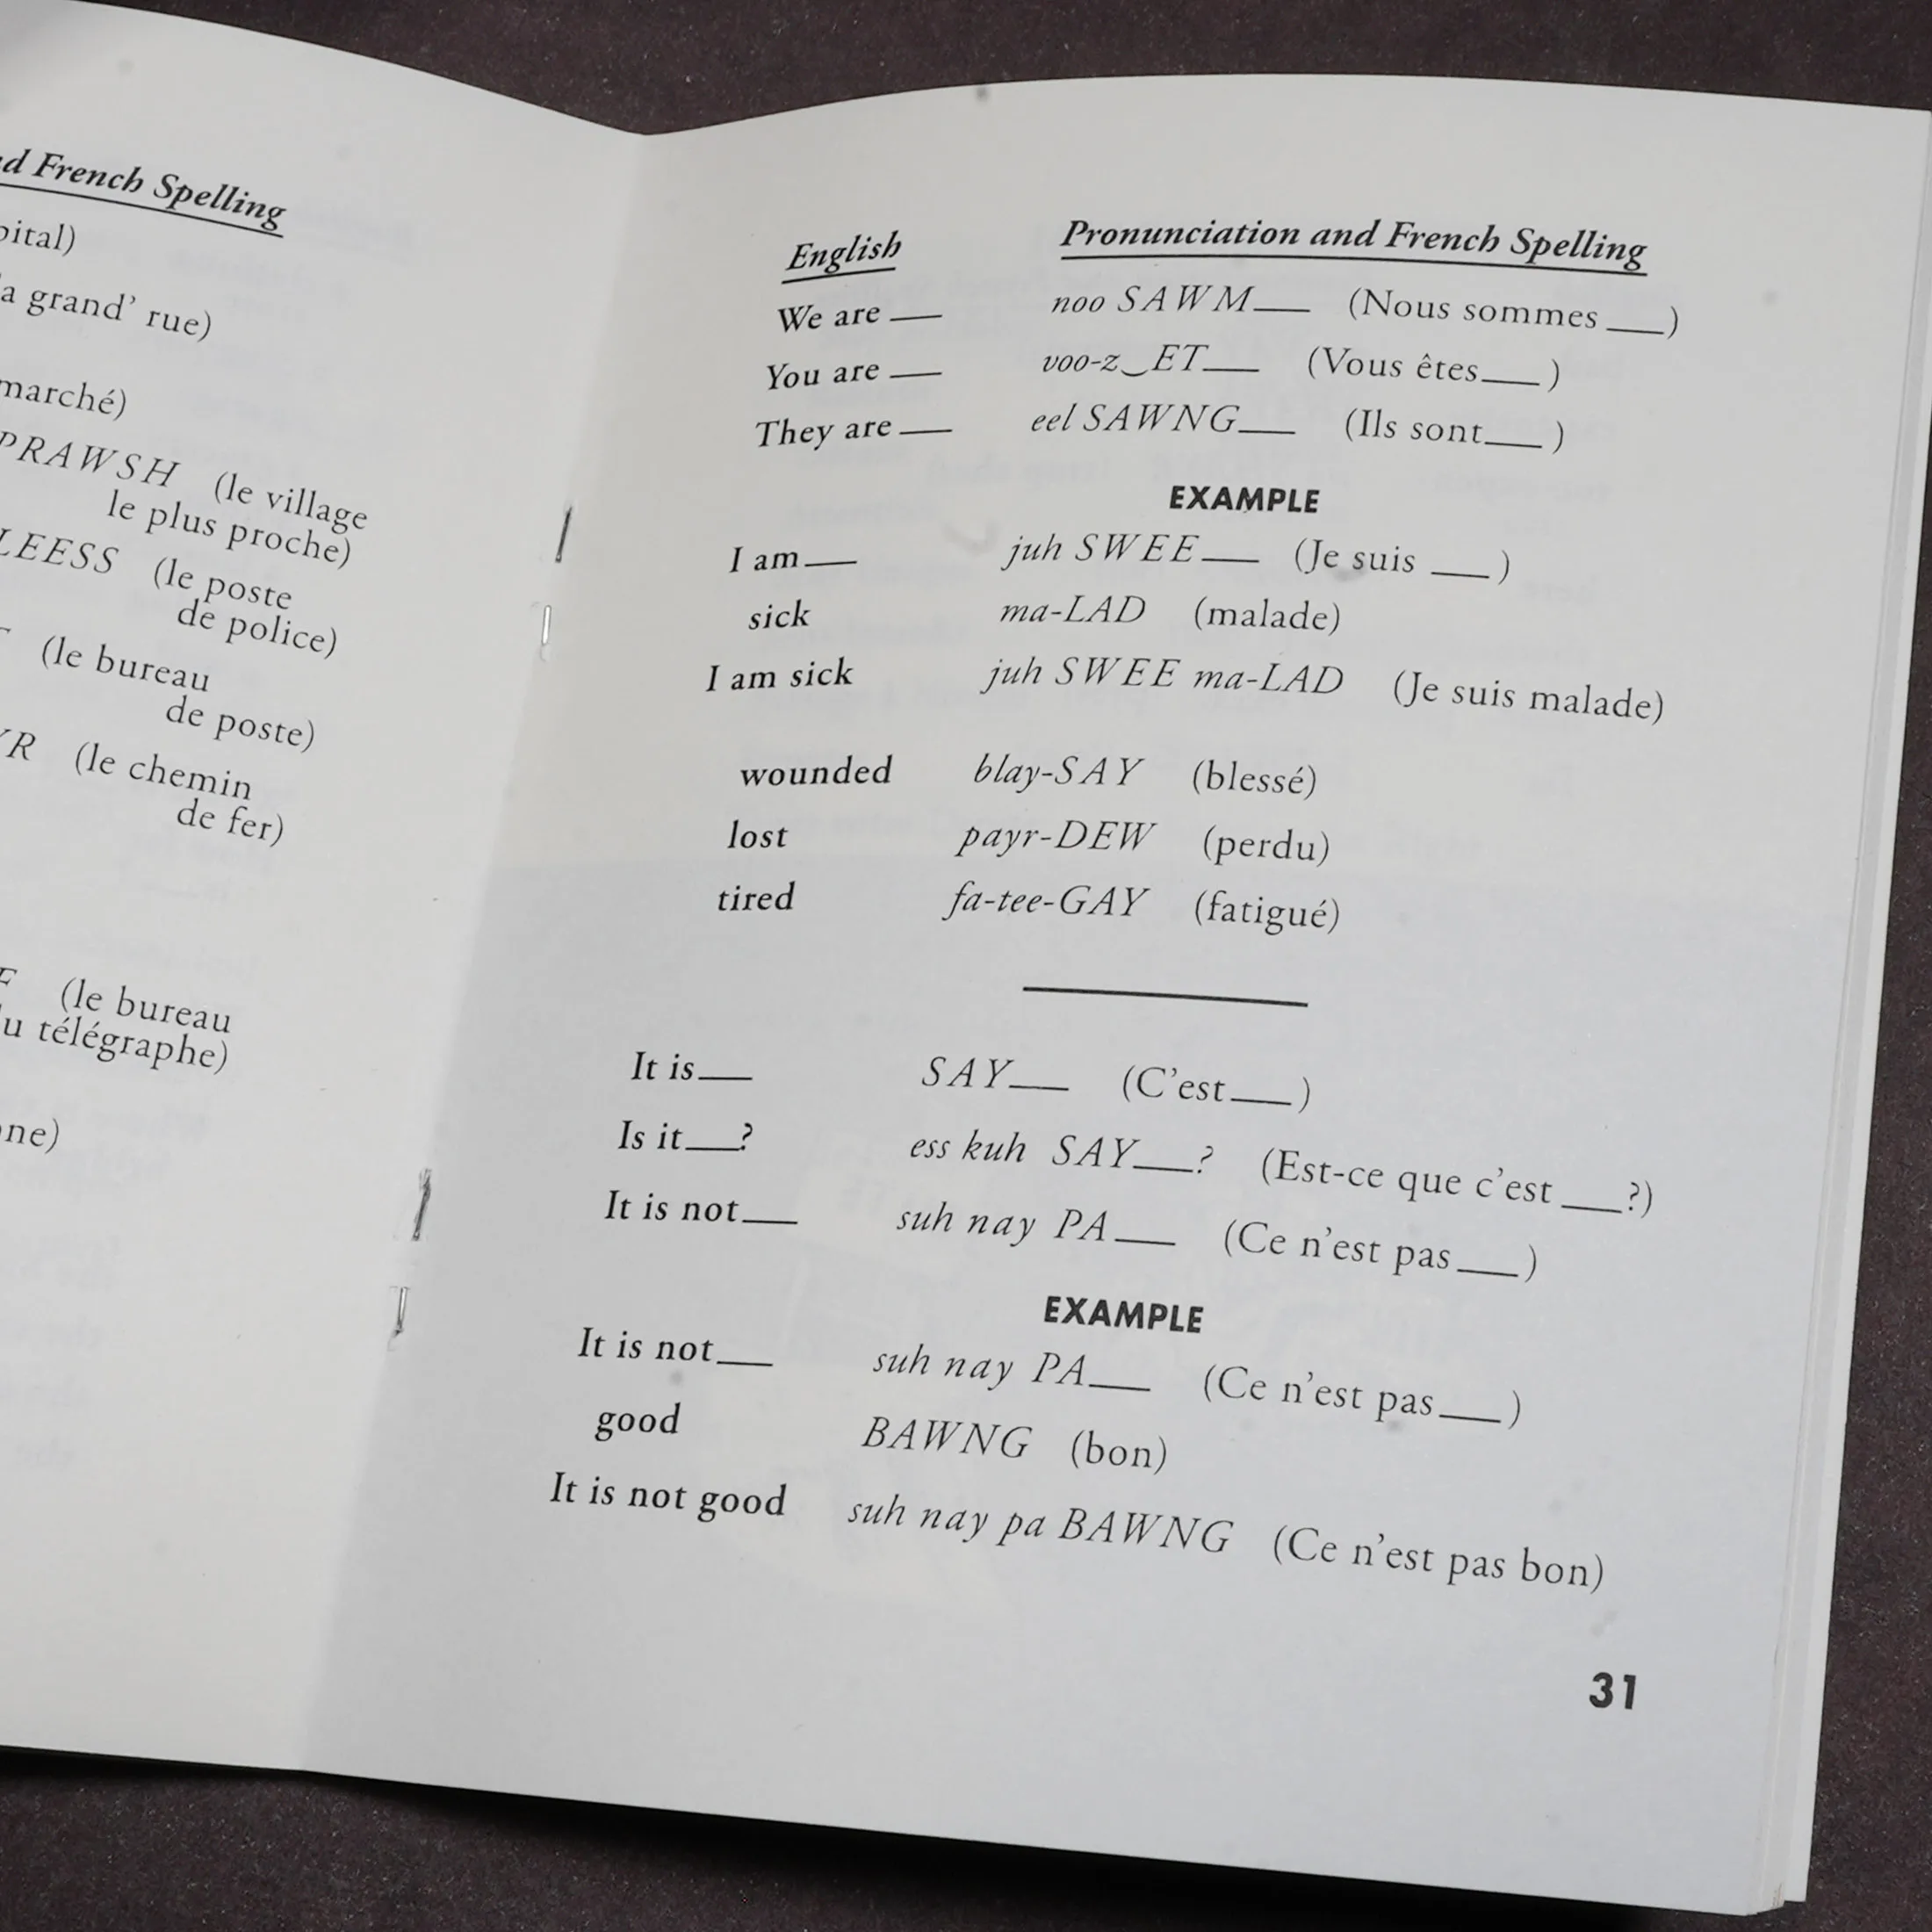 d French Spelling
pital)
a grand' rue)
marché)
PRAWSH (le village
le plus proche)
LEESS (le poste
de police)
(le bureau
de poste)
YR (le chemin
de fer)
(le bureau
du télégraphe)
ne)
English Pronunciation and French Spelling
We are ___ noo SAWM___ (Nous sommes ___)
You are ___ voo-z‿ET___ (Vous êtes___)
They are ___ eel SAWNG___ (Ils sont___)
EXAMPLE
I am___ juh SWEE___ (Je suis ___)
sick ma-LAD (malade)
I am sick juh SWEE ma-LAD (Je suis malade)
wounded blay-SAY (blessé)
lost payr-DEW (perdu)
tired fa-tee-GAY (fatigué)
It is___ SAY___ (C'est___)
Is it___? ess kuh SAY___? (Est-ce que c'est ___?)
It is not___ suh nay PA___ (Ce n'est pas___)
EXAMPLE
It is not___ suh nay PA___ (Ce n'est pas___)
good BAWNG (bon)
It is not good suh nay pa BAWNG (Ce n'est pas bon)
31